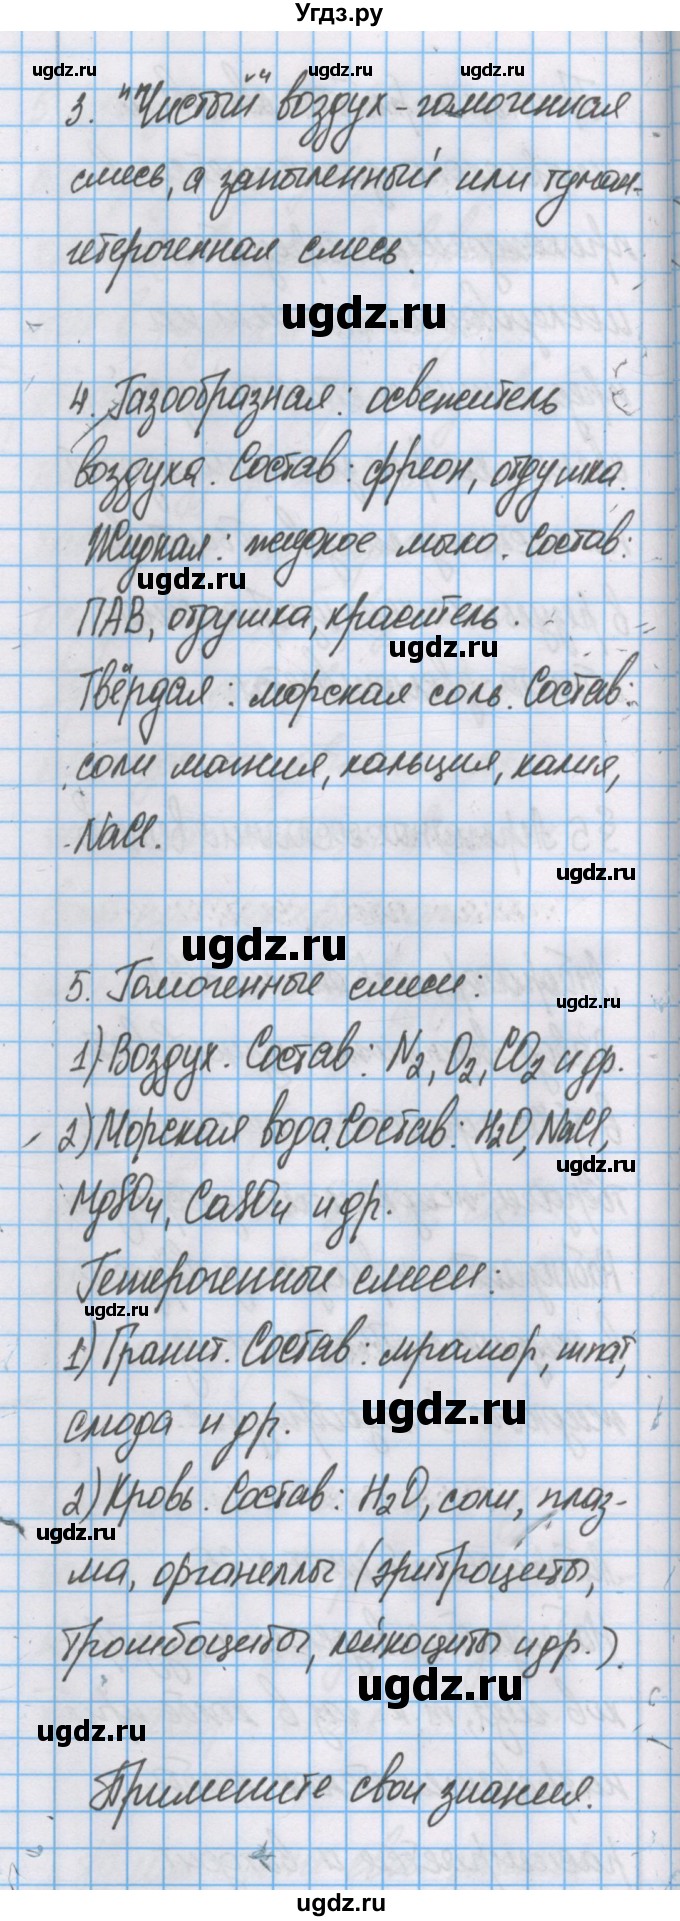 Угдз.ру
ugdz.ru ugdz.ru ugdz.ru
3. "Чистый" воздух - гомогенная
смесь, а запыленный или туман-
гетерогенная смесь.
ugdz.ru
4. Газообразная: освежитель
воздуха. Состав: фреон, отдушка.
Жидкая: жидкое мыло. Состав:
ugdz.ru
ПАВ, отдушка, краситель.
ugdz.ru
Твёрдая: морская соль. Состав:
соли магния, кальция, калия,
NaCl.
ugdz.ru
ugdz.ru
5. Гомогенные смеси:
ugdz.ru
1) Воздух. Состав: N2, O2, CO2 и др.
2) Морская вода. Состав: H2O, NaCl,
ugdz.ru
MgSO4, CaSO4 и др.
Гетерогенные смеси:
ugdz.ru
1) Гранит. Состав: мрамор, шпат,
ugdz.ru
слюда и др.
2) Кровь. Состав: H2O, соли, плаз-
ugdz.ru
ма, органеллы (эритроциты,
тромбоциты, лейкоциты и др.).
ugdz.ru
ugdz.ru
Примените свои знания.
ugdz.ru